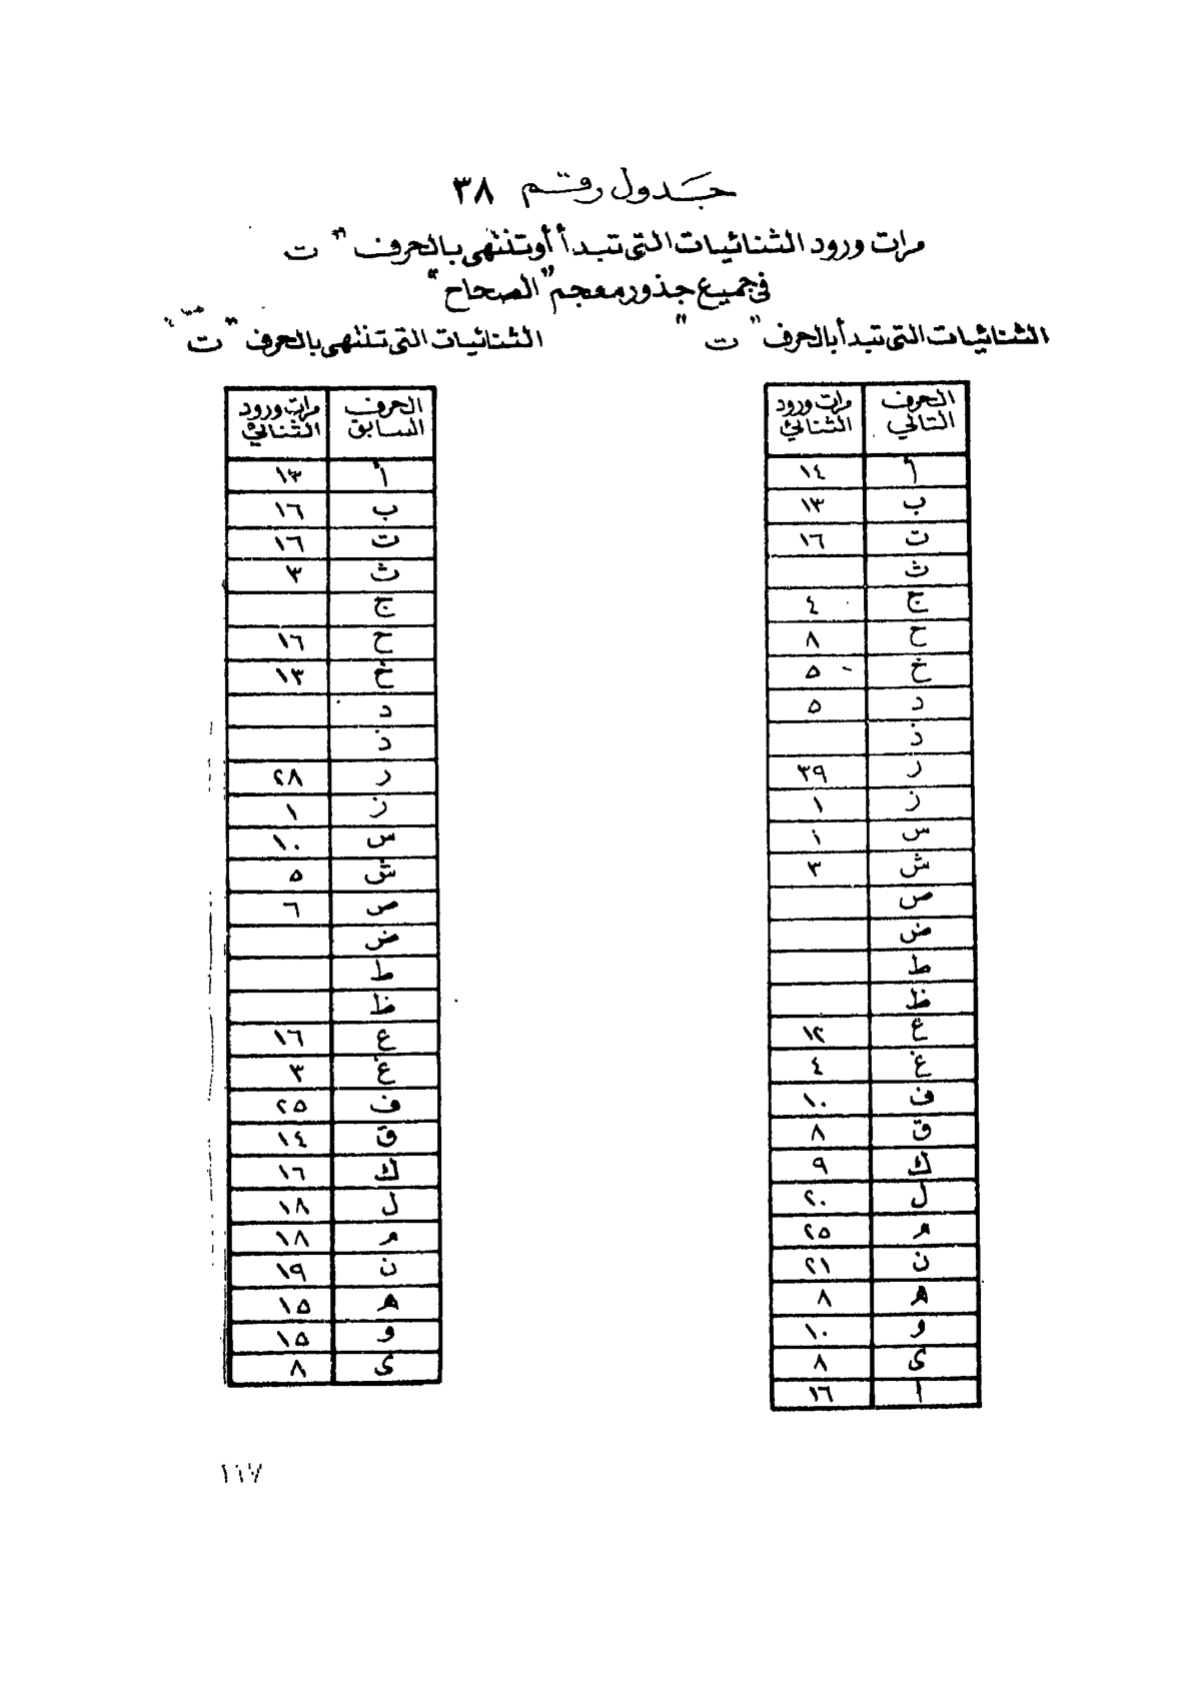 جدول رقم ٣٨
مرات ورود الثنائيات التى تبدأ أو تنتهى بالحرف " ت
فى جميع جذور معجم "الصحاح"
الثنائيات التى تبدأ بالحرف " ت "
الحرف التالي | مرات ورود الثنائي
أ | ١٤
ب | ١٣
ت | ١٦
ث |
ج | ٤
ح | ٨
خ | ٥
د | ٥
ذ |
ر | ٣٩
ز | ١
س | ١
ش | ٣
ص |
ض |
ط |
ظ |
ع | ١٢
غ | ٤
ف | ١٠
ق | ٨
ك | ٩
ل | ٢٠
م | ٢٥
ن | ٢١
ه | ٨
و | ١٠
ى | ٨
ا | ١٦
الثنائيات التى تنتهى بالحرف " ت "
الحرف السابق | مرات ورود الثنائي
أ | ١٣
ب | ١٦
ت | ١٦
ث | ٣
ج |
ح | ١٦
خ | ١٣
د |
ذ |
ر | ٢٨
ز | ١
س | ١٠
ش | ٥
ص | ٦
ض |
ط |
ظ |
ع | ١٦
غ | ٣
ف | ٢٥
ق | ١٤
ك | ١٦
ل | ١٨
م | ١٨
ن | ١٩
ه | ١٥
و | ١٥
ى | ٨